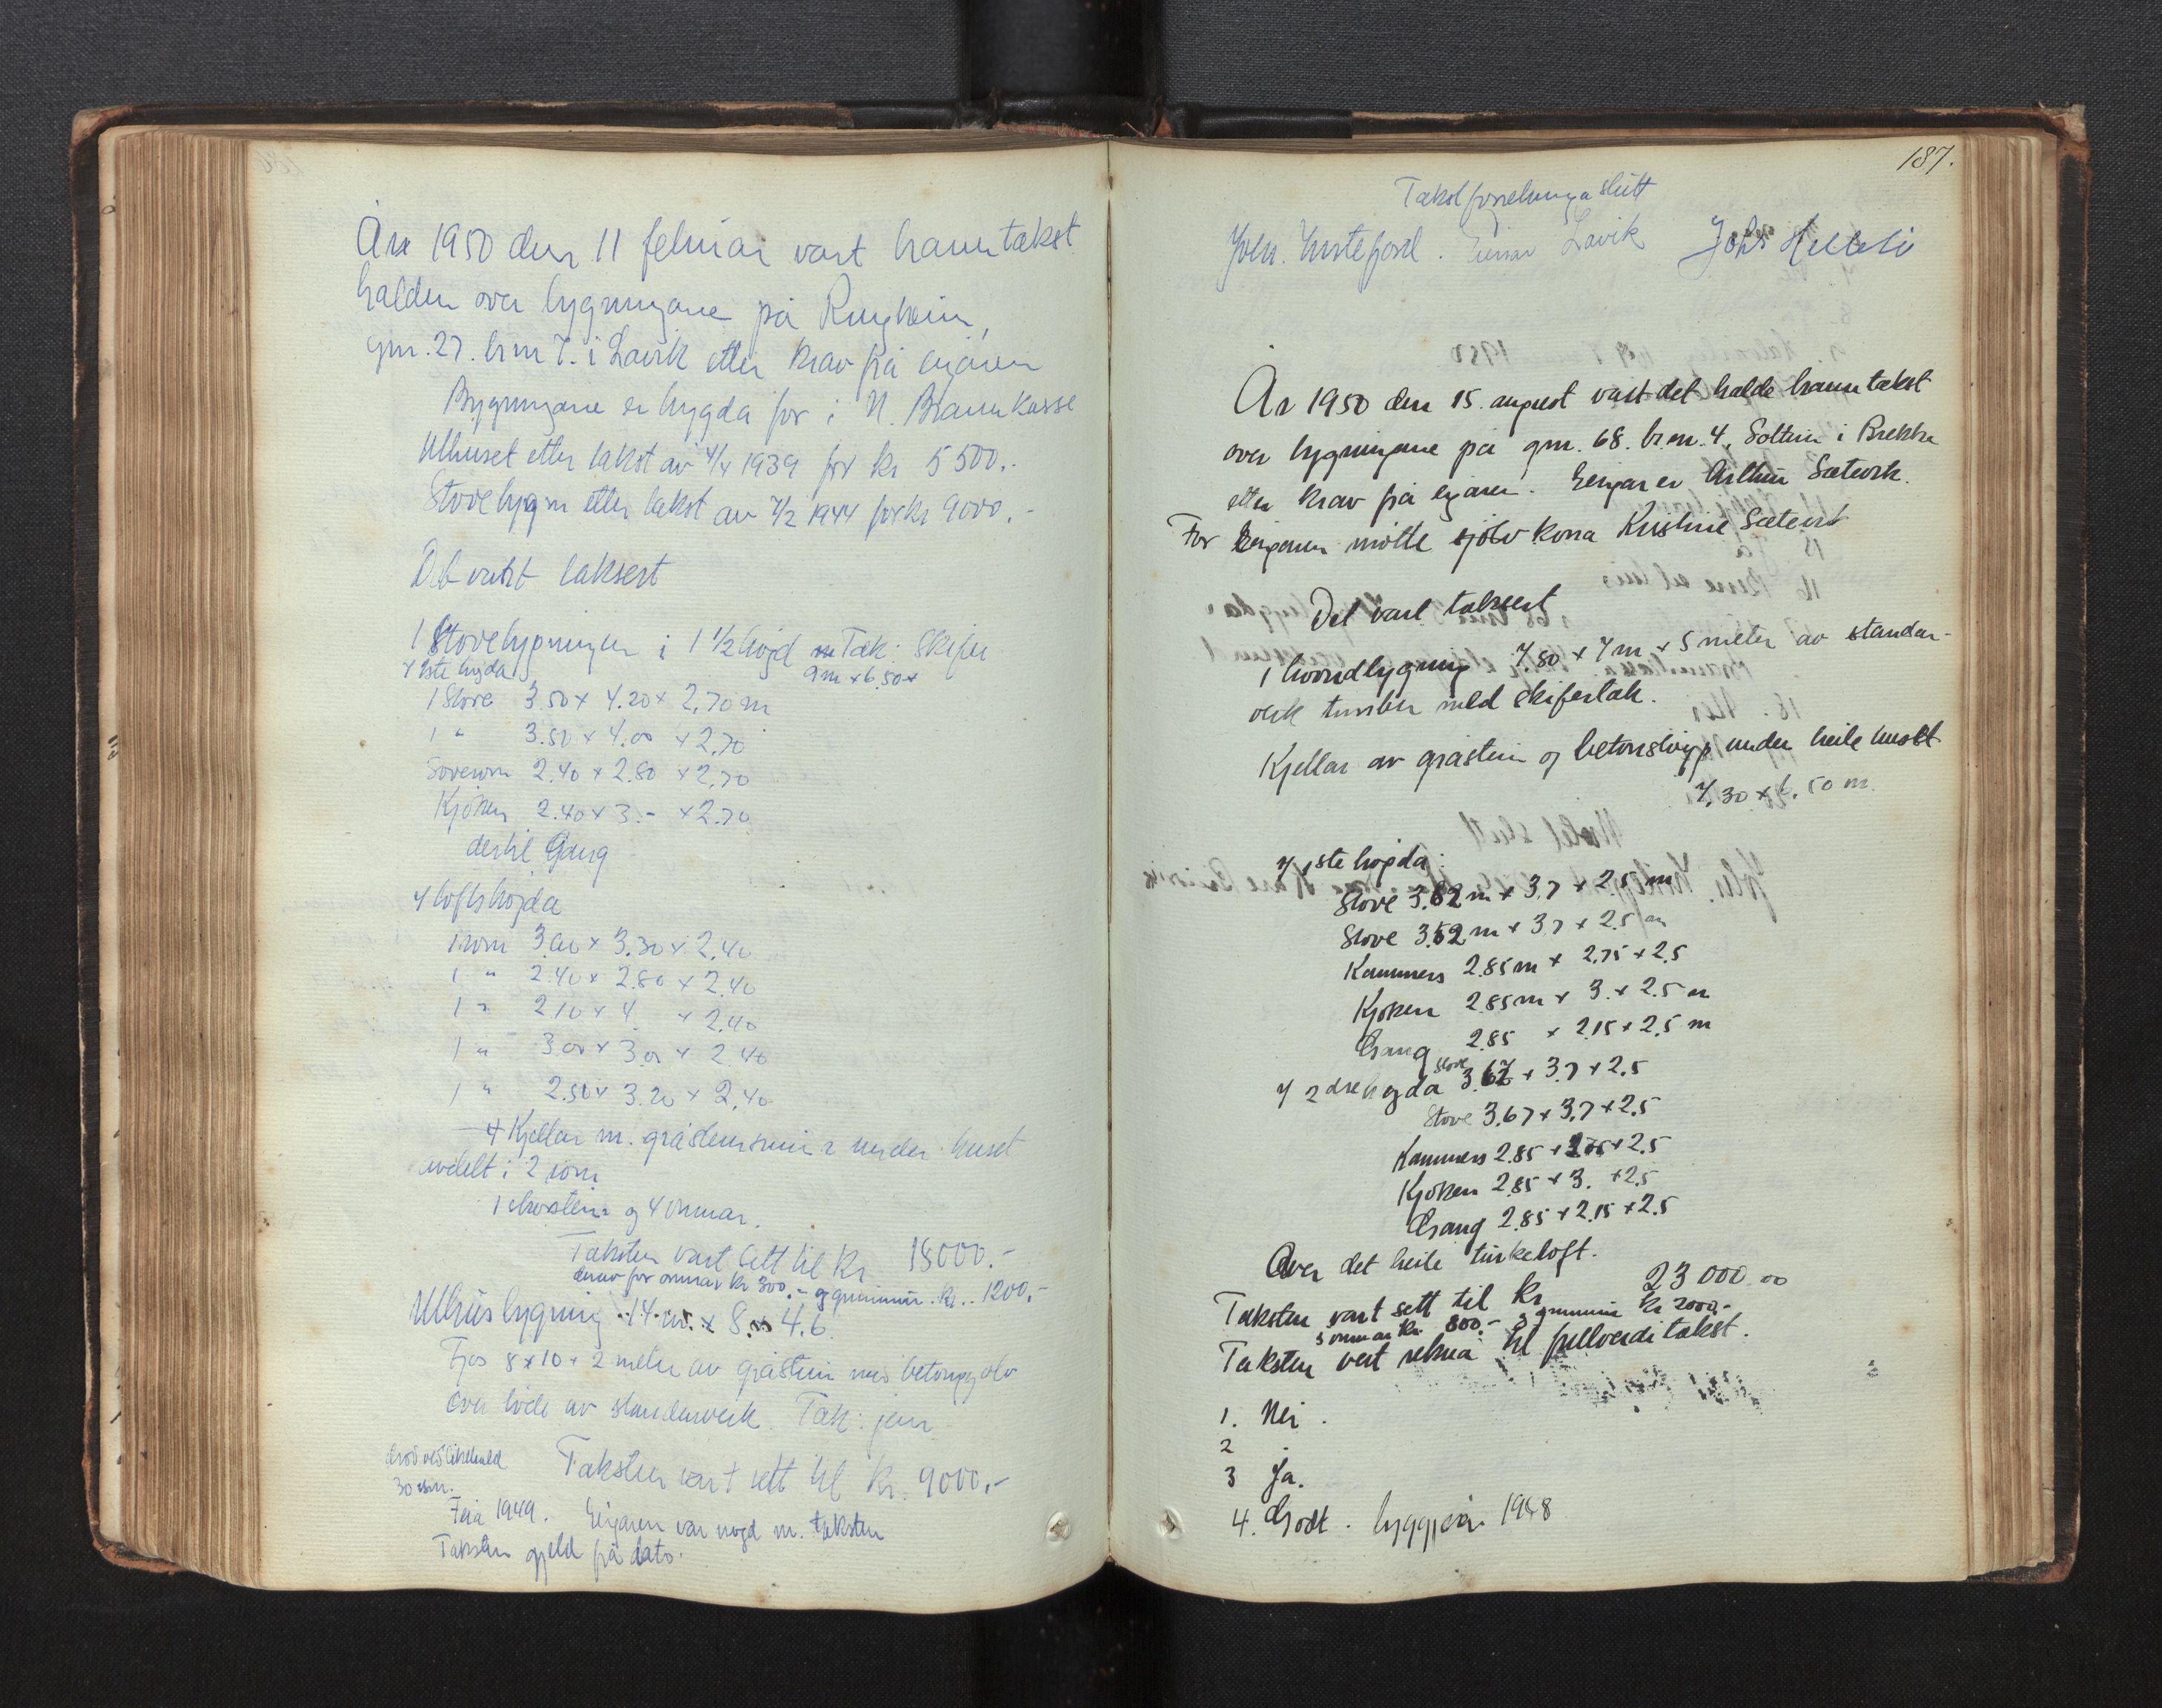 År 1950 den 11 februar vart branntakst
halden over bygningane på Ringheim,
gnr. 27. brnr 7. i Lavik etter krav frå eigaren
Bygningane er trygda før i N. Brannkasse
Uthuset etter takst av 4/4 1939 for kr 5500.-
Stovebygn etter takst av 7/2 1944 for kr 9000.-
Det vart taksert
1 Stovebygningen i 1 1/2 høgd Tak: Skifer
9 m x 6.50 x
I 1ste høgda
1 Stove 3.50 x 4.20 x 2,70 m
1 " 3.50 x 4.00 x 2,70
Soverom 2.40 x 2.80 x 2,70
Kjøken 2.40 x 3.- x 2.70
dertil Gang
I loftshøgda
1 rom 3.00 x 3.30 x 2,40
1 " 2.40 x 2.80 x 2.40
1 " 2.10 x 4. x 2,40
1 " 3.00 x 3.00 x 2.40
1 " 2.50 x 3.20 x 2,40
Kjellar m. gråsteinsmur under huset
avdelt i 2 rom
1 skorstein og 4 omnar.
Taksten vart sett til kr 18000.-
derav for omnar kr 300.- og grunnmur. kr.. 1200.-
Uthusbygning 14 m. x 8. x 4.6
Fjøs 8 x 10 x 2 meter av gråstein med betonggolv
over løde av standerverk. Tak: jern
Taksten vart sett til kr. 9000.-
Grov vedlikehald
30 m.
Frå 1949. Eigaren var nøgd m. taksten
Taksten gjeld frå dato.
187.
Takstforretninga slutt
Johs. Justefjord. Einar Lavik Johs Hellebø
År 1950 den 15. august vart det halde branntakst
over bygningane på gnr. 68. br.nr. 4, Solheim i Brekke
etter krav frå eigaren. Eeigar er Arthur Sætevik.
For Eeigaren møtte sjølv kona Kristine Sætevik
Det vart taksert
1 hovudbygning 7.80 x 7 m x 5 meter av standar-
verk tømber med skifertak.
Kjellar av gråstein og betonstøyp under heile huset
7,30 x 6.50 m.
I 1ste høgda:
Stove 3.62 m x 3.7 x 2.5 m
Stove 3.52 m x 3.7 x 2.5 m
Kammers 2.85 m x 2.75 x 2.5
Kjøken 2.85 m x 3. x 2.5 m
Gang 2.85 x 2.15 x 2.5 m
stove
I 2dre høgda 3.67 x 3.7 x 2.5
Stove 3.67 x 3.7 x 2.5
Kammers 2.85 x 2.75 x 2.5
Kjøken 2.85 x 3. x 2.5
Gang 2.85 x 2.15 x 2.5
Over det heile tørkeloft.
Taksten vart sett til kr 23 000.00
5 omnar kr. 800.- og grunnmur kr 2000.-
Taksten vert rekna til fullverditakst.
1. Nei.
2 .
3 Ja.
4. Godt. byggjeår 1948